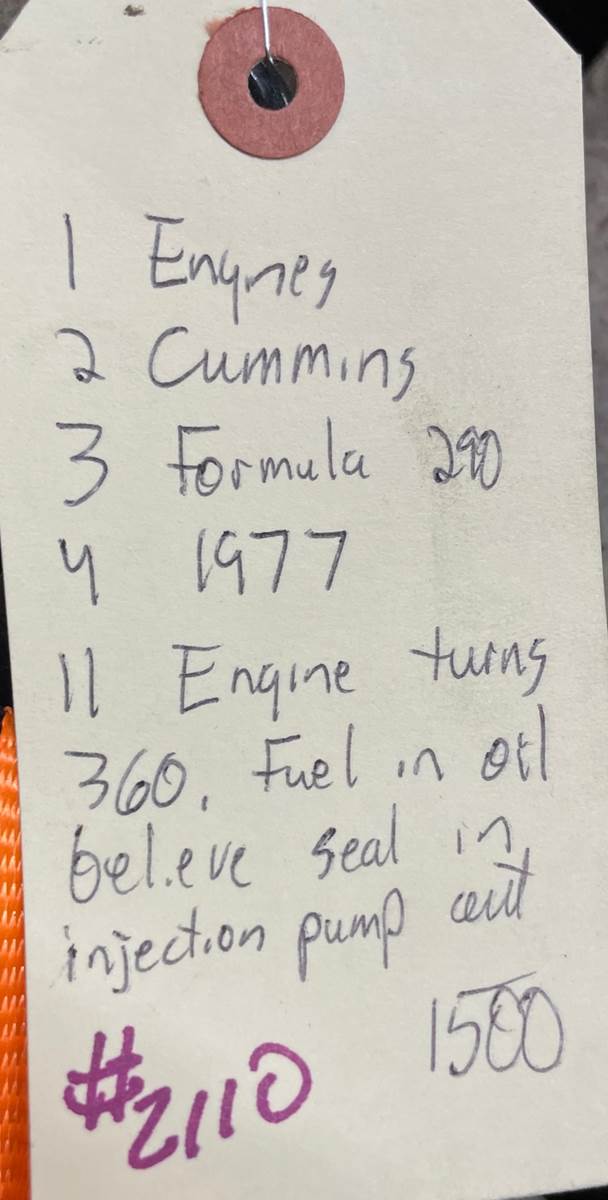 1 Engines
2 Cummins
3 Formula 290
4 1977
11 Engine turns
360. Fuel in oil
believe seal in
injection pump out
1500
#2110